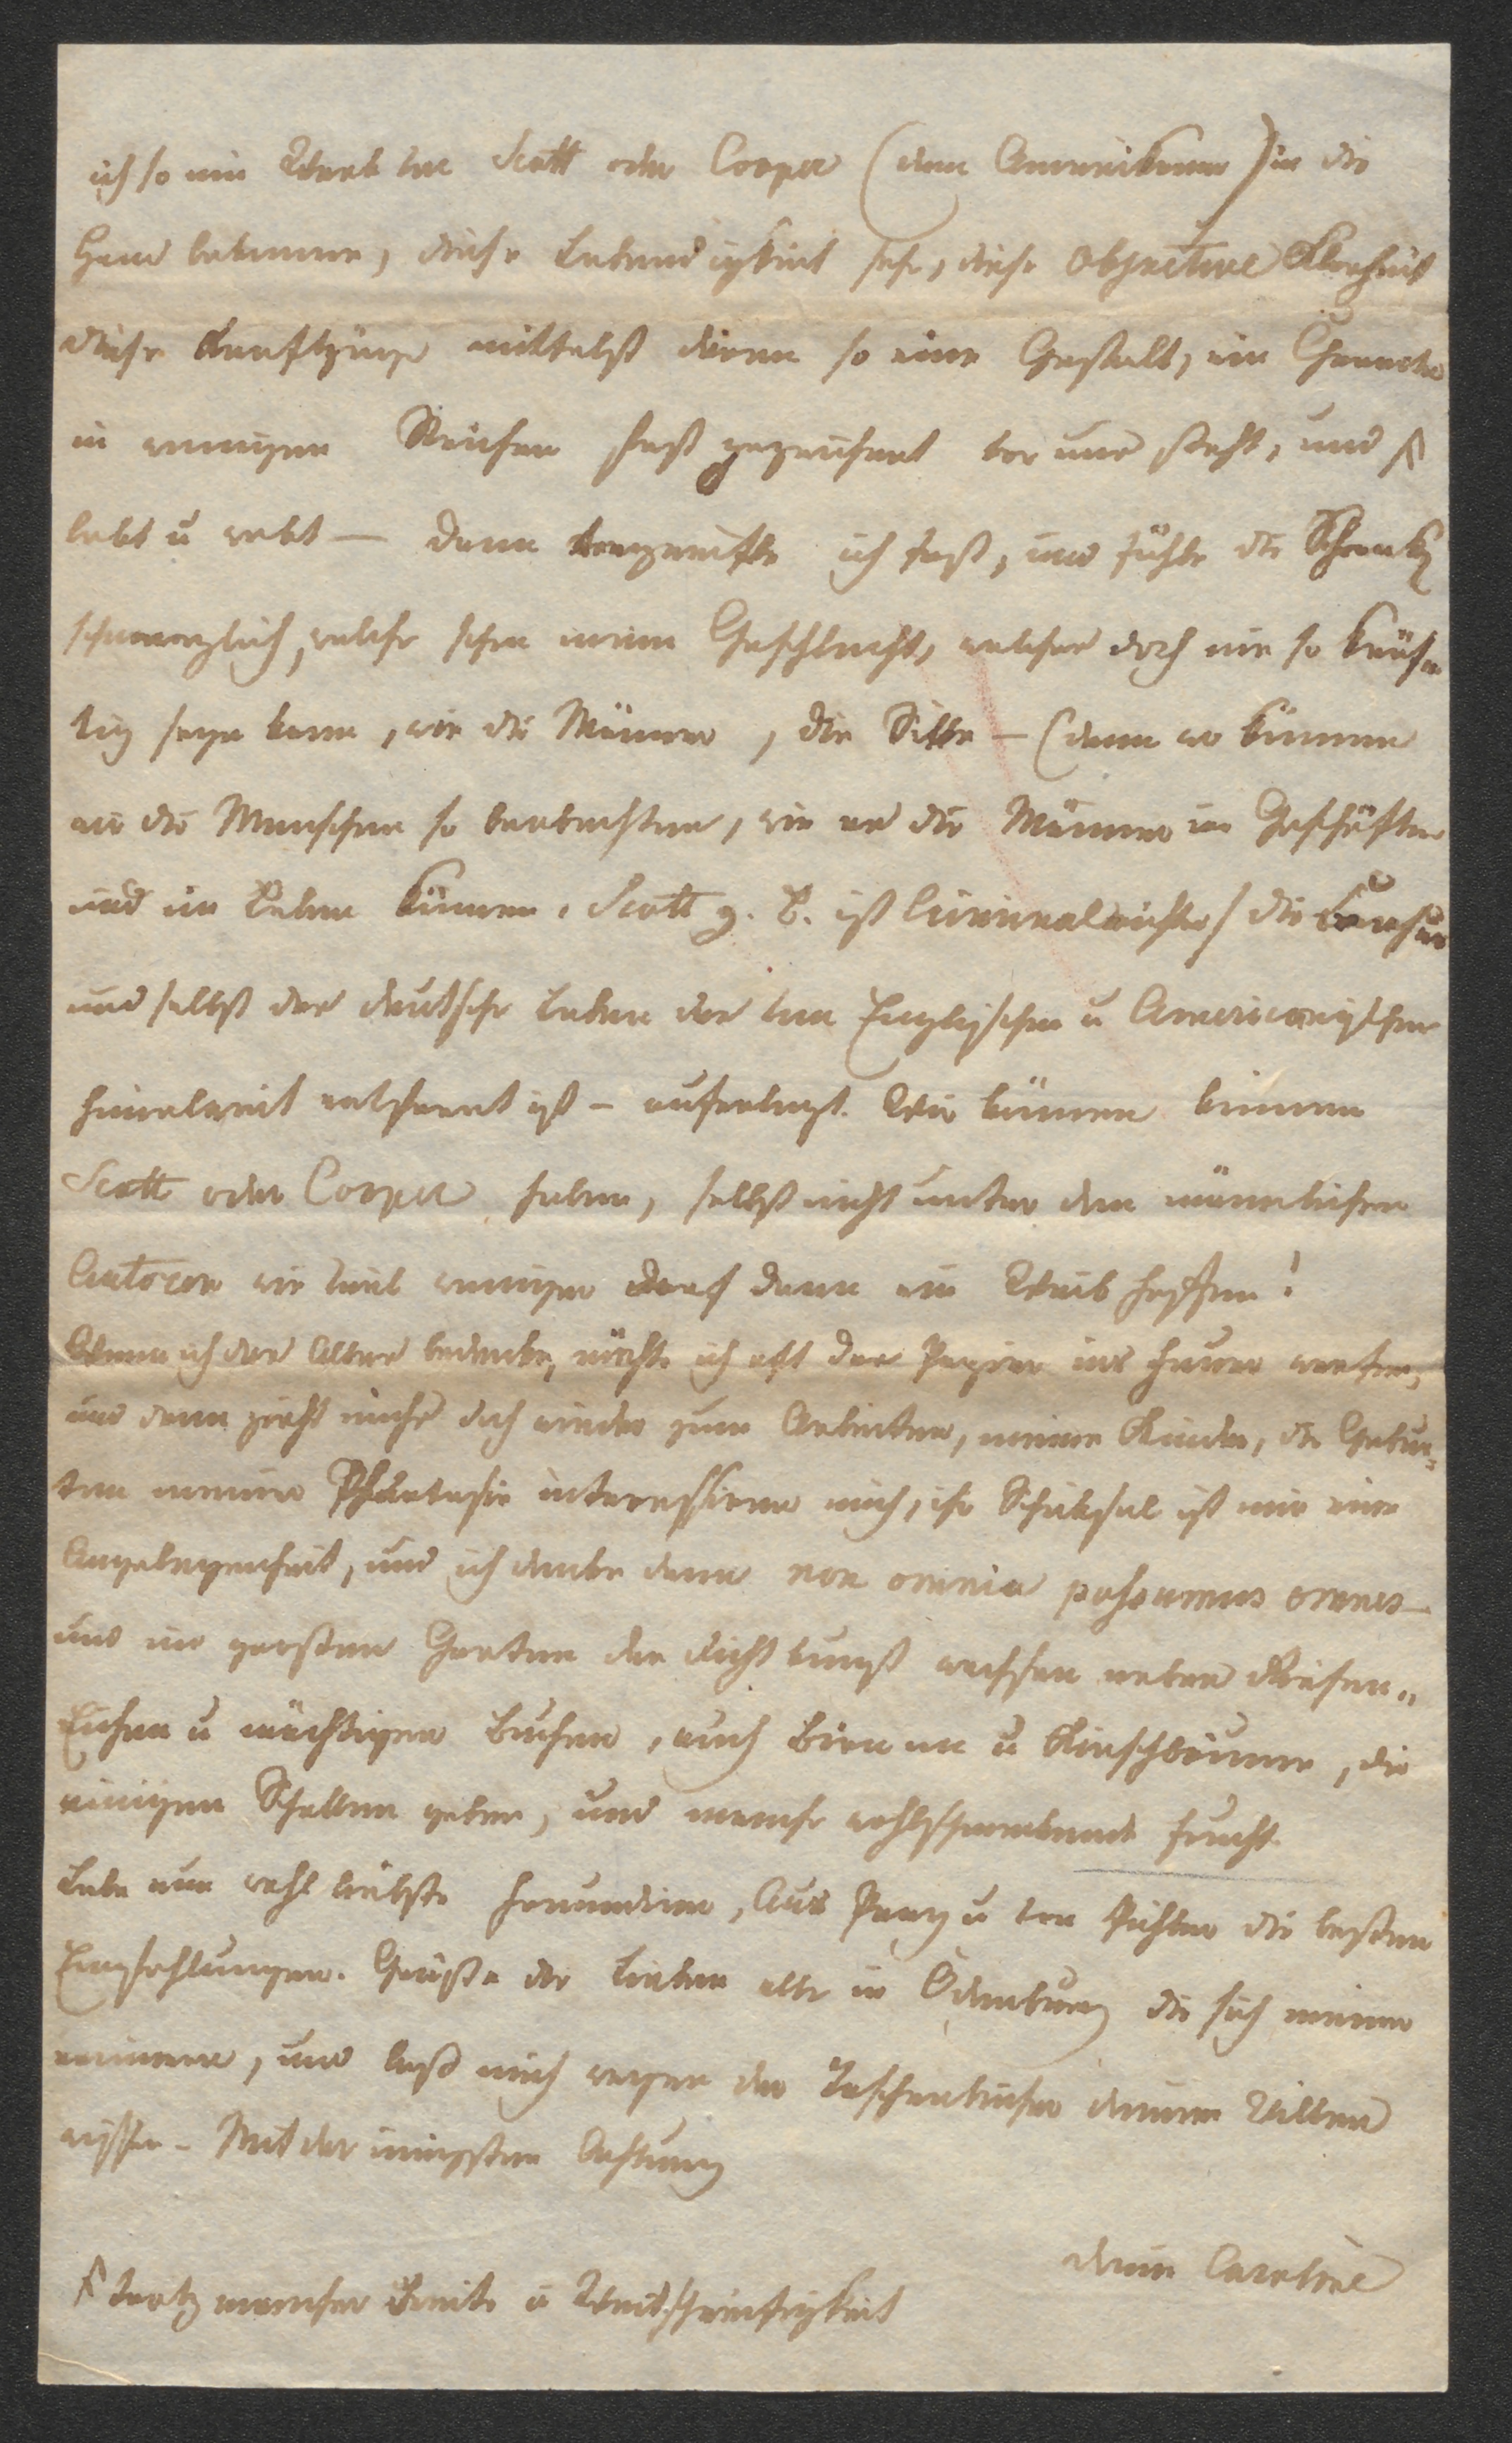 ich so ein Werk von Scott oder Cooper (dem Amerikaner) in die
Hand bekomme, diese Lebendigkeit sehe, diese objective Klarheit
diese Kraftzüge mittelst deren so eine Gestalt, ein Character
in wenigen Strichen fest gezeichnet vor uns steht, und
lebt u webt — dann verzweifle ich fast, und fühle die Schranken
schmerzlich, welche schon meinem Geschlecht, welches doch nie so kräf-
tig seyn kann, wie die Männer, die Sitte — (denn wo können
wir die Menschen so beobachten, wie es die Männer in Geschäften
und im Leben können. Scott z. B. ist Criminalrichter) die
und selbst das deutsche Leben das vom Englischen u Americanischen
himelweit entfernt ist — auferlegt. Wir können keinen
Scott oder Cooper haben, selbst nicht unter den männlichen
Autoren wie viel weniger darf denn ein Weib hoffen!
Wenn ich das Alles bedenke, möchte ich oft das Papier ins Feuer werfen,
und dann zieht michs doch wieder zum Arbeiten, meine Kinder, die Gebur-
ten meiner Phantasie interessiren mich, ihr Schicksal ist mir eine
Angelegenheit, und ich denke dann non omnia possumus omnes —
und im großen Garten der Dichtkunst wachsen neben Riesen-
Eichen u mächtigen Buchen, auch Birnen u Kirschbäume, die
einigen Schatten geben, und manche wohlschmeckende Frucht.
Lebe nun wohl liebste Freundinn, Aus Prag u von Pichler die besten
Empfehlungen. Grüße die Lieben alle in Ödenburg die sich meiner
erinnern, und laß mich wegen der Taschenbücher deinen Willen
wissen — Mit der innigsten Achtung
deine Caroline
trotz mancher Breite u Weitschweifigkeit